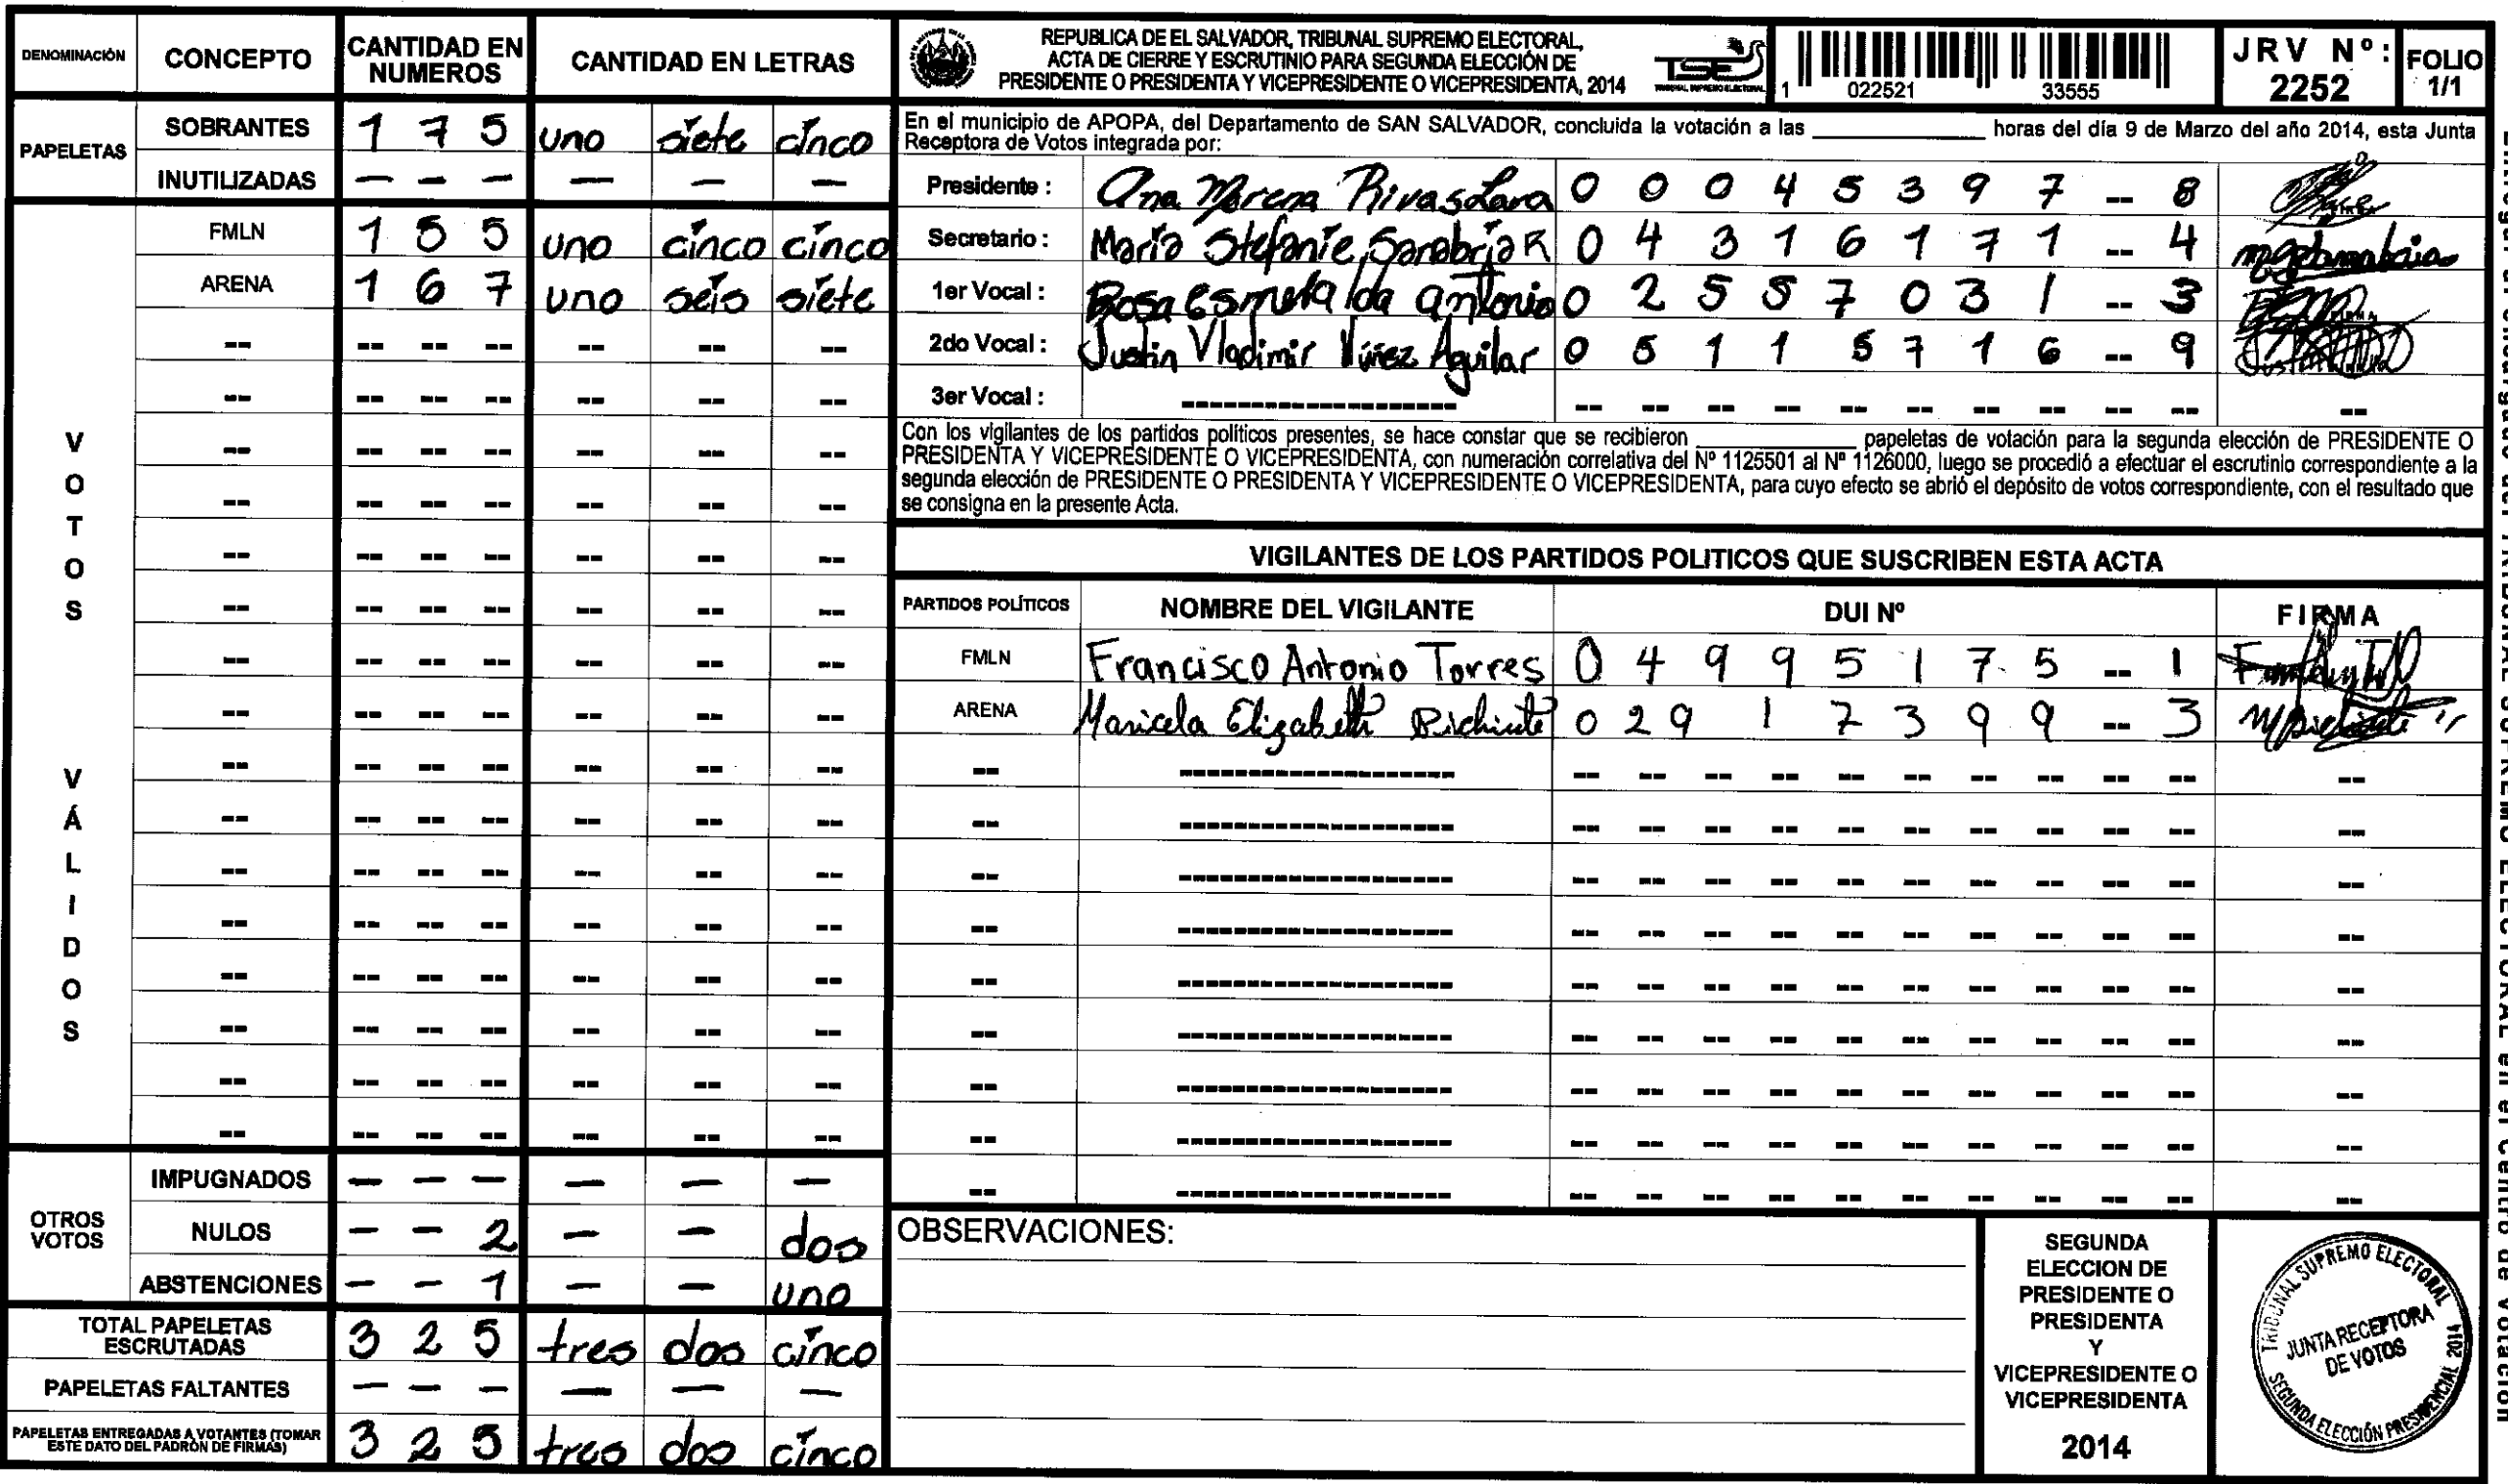 DENOMINACIÓN CONCEPTO CANTIDAD EN NUMEROS CANTIDAD EN LETRAS
PAPELETAS
SOBRANTES 1 7 5 uno siete cinco
INUTILIZADAS — — — — — —
VOTOS VÁLIDOS
FMLN 1 5 5 uno cinco cinco
ARENA 1 6 7 uno seis siete
OTROS VOTOS
IMPUGNADOS — — — — — —
NULOS — — 2 — — dos
ABSTENCIONES — — 1 — — uno
TOTAL PAPELETAS ESCRUTADAS 3 2 5 tres dos cinco
PAPELETAS FALTANTES — — — — — —
PAPELETAS ENTREGADAS A VOTANTES (TOMAR ESTE DATO DEL PADRÓN DE FIRMAS) 3 2 5 tres dos cinco
REPUBLICA DE EL SALVADOR, TRIBUNAL SUPREMO ELECTORAL,
ACTA DE CIERRE Y ESCRUTINIO PARA SEGUNDA ELECCIÓN DE
PRESIDENTE O PRESIDENTA Y VICEPRESIDENTE O VICEPRESIDENTA, 2014
TSE
TRIBUNAL SUPREMO ELECTORAL
1 022521 33555
JRV Nº: 2252
FOLIO 1/1
En el municipio de APOPA, del Departamento de SAN SALVADOR, concluida la votación a las ____ horas del día 9 de Marzo del año 2014, esta Junta
Receptora de Votos integrada por:
Presidente : Ana Morena Rivas Lara 0 0 0 4 5 3 9 7 -- 8
Secretario : María Stefanie Sanabria R 0 4 3 1 6 1 7 1 -- 4
1er Vocal : Rosa Esmeralda Antonio 0 2 5 5 7 0 3 1 -- 3
2do Vocal : Justin Vladimir Núñez Aguilar 0 5 1 1 5 7 1 6 -- 9
3er Vocal :
Con los vigilantes de los partidos políticos presentes, se hace constar que se recibieron ____ papeletas de votación para la segunda elección de PRESIDENTE O
PRESIDENTA Y VICEPRESIDENTE O VICEPRESIDENTA, con numeración correlativa del Nº 1125501 al Nº 1126000, luego se procedió a efectuar el escrutinio correspondiente a la
segunda elección de PRESIDENTE O PRESIDENTA Y VICEPRESIDENTE O VICEPRESIDENTA, para cuyo efecto se abrió el depósito de votos correspondiente, con el resultado que
se consigna en la presente Acta.
VIGILANTES DE LOS PARTIDOS POLITICOS QUE SUSCRIBEN ESTA ACTA
PARTIDOS POLÍTICOS NOMBRE DEL VIGILANTE DUI Nº FIRMA
FMLN Francisco Antonio Torres 0 4 9 9 5 1 7 5 -- 1
ARENA Maricela Elizabeth Pichinte 0 2 9 1 7 3 9 9 -- 3
OBSERVACIONES:
SEGUNDA
ELECCION DE
PRESIDENTE O
PRESIDENTA
Y
VICEPRESIDENTE O
VICEPRESIDENTA
2014
TRIBUNAL SUPREMO ELECTORAL
JUNTA RECEPTORA
DE VOTOS
SEGUNDA ELECCIÓN PRESIDENCIAL 2014
Entregar al encargado del TRIBUNAL SUPREMO ELECTORAL en el Centro de Votación